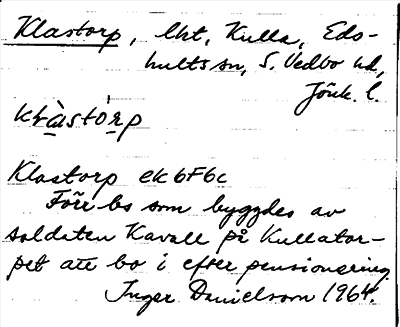 Klastorp, lht, Kulla, Eds-
hults sn, S. Vedbo hd,
Jönk. l.
klàstórp
Klastorp ek 6F6c
Förr bs som byggdes av
soldaten Kavall på Kullator-
pet att bo i efter pensionering.
Inger Danielsson 1964.